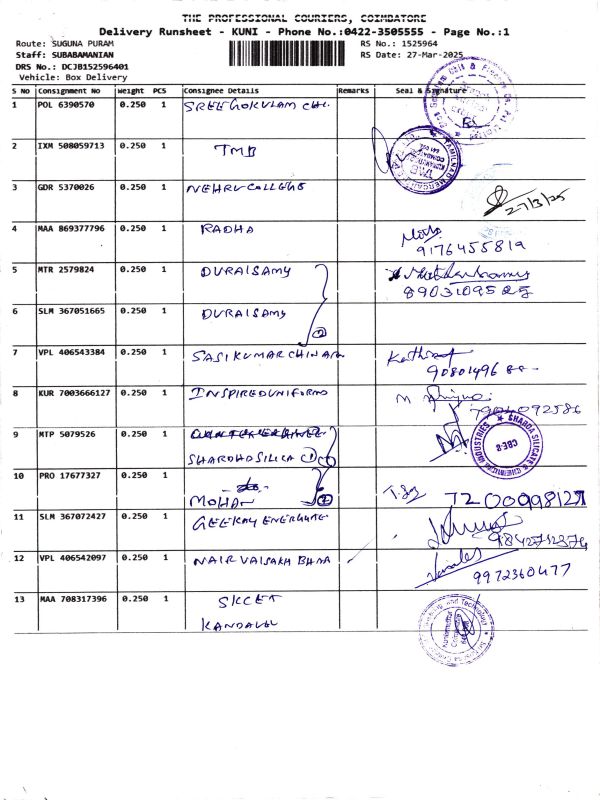 THE PROFESSIONAL COURIERS, COIMBATORE
Delivery Runsheet - KUNI - Phone No.:0422-3505555 - Page No.:1
Route: SUGUNA PURAM
RS No.: 1525964
Staff: SUBABAMANIAN
RS Date: 27-Mar-2025
DRS No.: DCJB152596401
Vehicle: Box Delivery
S No Consignment No Weight PCS Consignee Details Remarks Seal & Signature
1 POL 6390570 0.250 1 SREE GOKULAM CHI.
2 IXM 508059713 0.250 1 TMB
3 GDR 5370026 0.250 1 NEHRU COLLEGE
27/3/25
4 MAA 869377796 0.250 1 RADHA
9176455819
5 MTR 2579824 0.250 1 DURAISAMY
8903109525
6 SLM 367051665 0.250 1 DURAISAMY
2
7 VPL 406543384 0.250 1 SASIKUMAR CHINAR
90801496
8 KUR 7003666127 0.250 1 INSPIRED UNIFORMS
7904092586
9 MTP 5079526 0.250 1
SHARDHA SILICA 1
SHARDA SILICATE & CHEMICAL INDUSTRIES
CBE-8
10 PRO 17677327 0.250 1
MOHAN 2
7200998127
11 SLM 367072427 0.250 1 GEEKAY
9842712374
12 VPL 406542097 0.250 1 NAIR VAISAKH
9972360477
13 MAA 708317396 0.250 1 SKCET
KANDAVEL